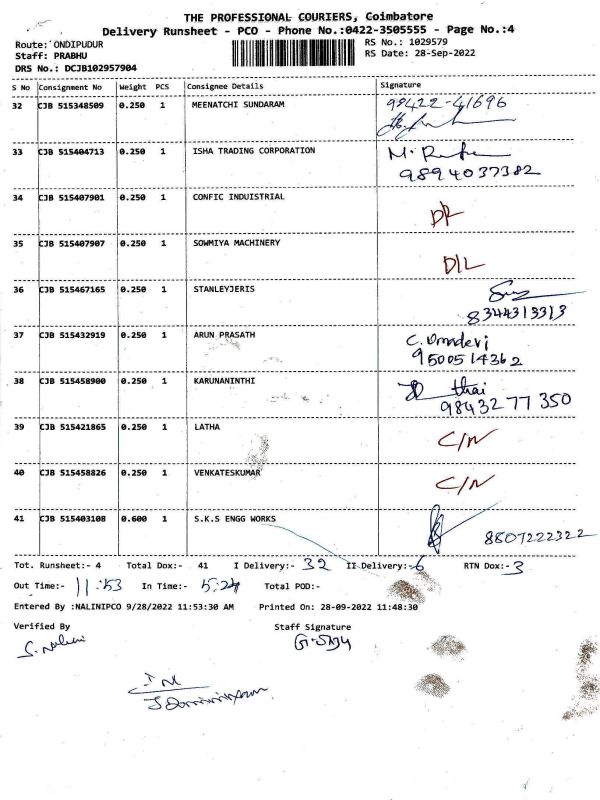 THE PROFESSIONAL COURIERS, Coimbatore
Delivery Runsheet - PCO - Phone No.:0422-3505555 - Page No.:4
Route: ONDIPUDUR RS No.: 1029579
Staff: PRABHU RS Date: 28-Sep-2022
DRS No.: DCJB102957904
S No Consignment No Weight PCS Consignee Details Signature
32 CJB 515348509 0.250 1 MEENATCHI SUNDARAM 98422-41696
33 CJB 515404713 0.250 1 ISHA TRADING CORPORATION
9894037382
34 CJB 515407901 0.250 1 CONFIC INDUISTRIAL
35 CJB 515407907 0.250 1 SOWMIYA MACHINERY
D/L
36 CJB 515467165 0.250 1 STANLEYJERIS
8344313313
37 CJB 515432919 0.250 1 ARUN PRASATH C. Umadevi
9500514362
38 CJB 515458900 0.250 1 KARUNANINTHI thai
98432 77 350
39 CJB 515421865 0.250 1 LATHA C/N
40 CJB 515458826 0.250 1 VENKATESKUMAR C/N
41 CJB 515403108 0.600 1 S.K.S ENGG WORKS
8807222322
Tot. Runsheet:- 4 Total Dox:- 41 I Delivery:- 32 II Delivery:- 6 RTN Dox:- 3
Out Time:- 11:53 In Time:- 5:24 Total POD:-
Entered By :NALINIPCO 9/28/2022 11:53:30 AM Printed On: 28-09-2022 11:48:30
Verified By Staff Signature
S. Nalini